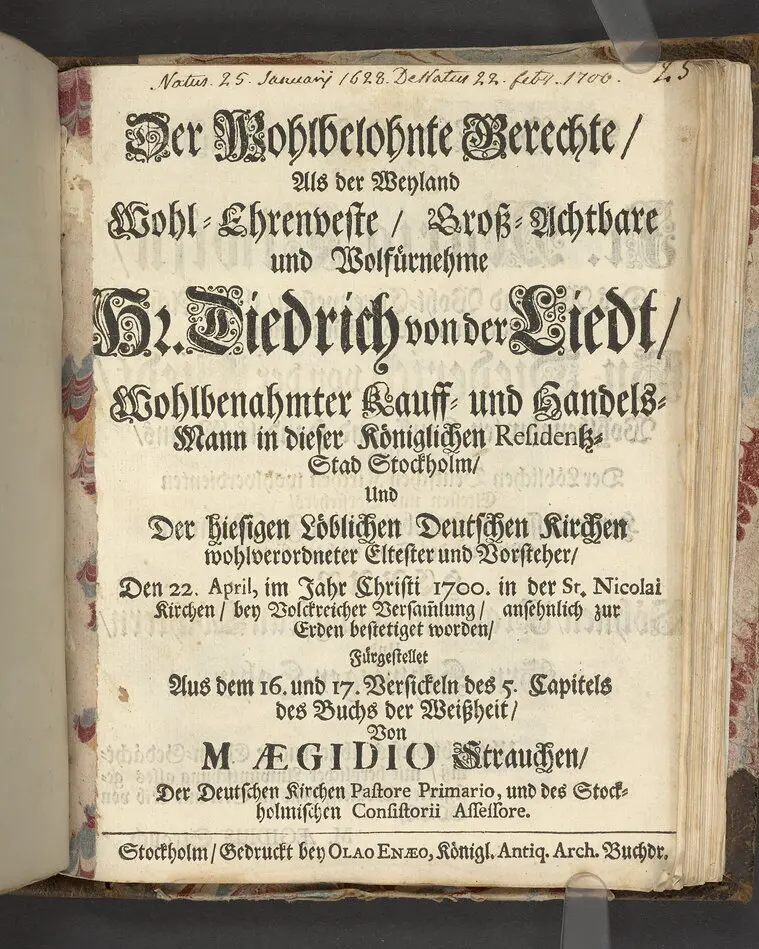 Natus. 25. Januarij 1628. De Natus 22. feby. 1700.
25
Der Wohlbelohnte Gerechte /
Als der Weyland
Wohl-Ehrenveste / Groß-Achtbare
und Wolfürnehme
Hr. Diedrich von der Liedt /
Wohlbenahmter Kauff- und Handels-
Mann in dieser Königlichen Residentz-
Stad Stockholm /
Und
Der hiesigen Löblichen Deutschen Kirchen
wohlverordneter Eltester und Vorsteher /
Den 22. April, im Jahr Christi 1700. in der St. Nicolai
Kirchen / bey Volckreicher Versam̃lung / ansehnlich zur
Erden bestetiget worden /
Fürgestellet
Aus dem 16. und 17. Versickeln des 5. Capitels
des Buchs der Weißheit /
Von
M ÆGIDIO Strauchen /
Der Deutschen Kirchen Pastore Primario, und des Stock-
holmischen Consistorii Assessore.
Stockholm / Gedruckt bey OLAO ENÆO, Königl. Antiq. Arch. Buchdr.